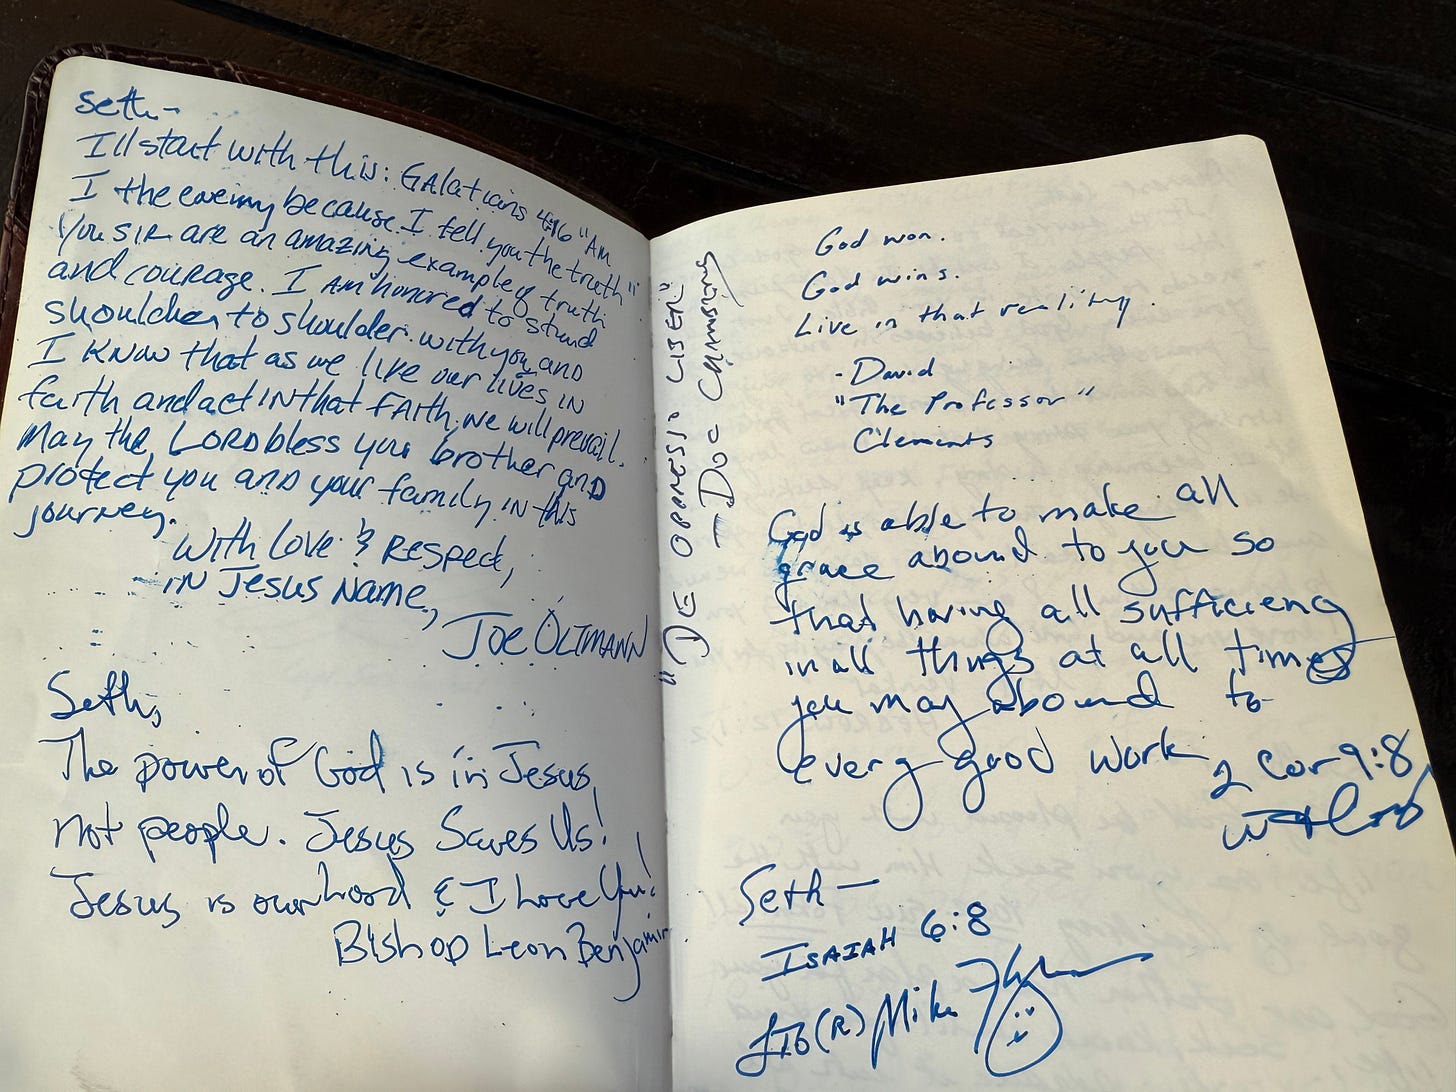 Seth -
I'll start with this: Galatians 4:16 "Am
I the enemy because I tell you the truth"
You SIR are an amazing example of truth
and courage. I AM honored to stand
shoulder to shoulder with you and
I KNOW that as we live our lives IN
faith and act IN that FAith, we will prevail.
May the LORD bless you brother and
protect you AND your family IN this
journey.
With Love & Respect,
IN Jesus Name,
Joe OLTMANN
Seth,
The power of God is in Jesus,
not people. Jesus Saves Us!
Jesus is our Lord & I Love You!
Bishop Leon Benjamin
"DE OPPRESSO LIBER"
- Doc Chambers
God won.
God wins.
Live in that reality.
- David
"The Professor"
Clements
God is able to make all
grace abound to you so
that having all sufficiency
in all things at all times
you may abound to
every good work
2 Cor 9:8
Seth -
ISAIAH 6:8
(R) Mike